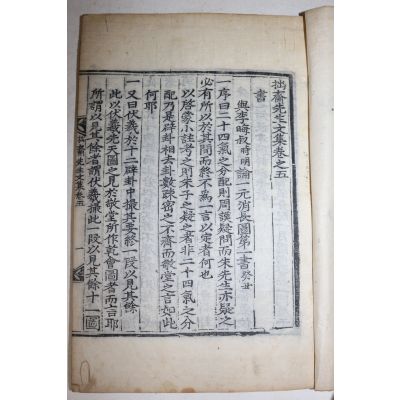 拙齋先生文集卷之五
書
與李晦叔時明論一元消長圖第一書癸丑
一序曰二十四氣之分配則周謨疑問而朱先生亦疑之
必有所以於其間而終不爲一言以定者何也
以啓蒙小註考之則朱子之疑之者非二十四氣之分
配乃是辟卦相去卦數疎密之不齊而敬堂之言如此
何耶
一又曰伏羲於十二辟卦中撮其要終一段以見其餘
此以伏羲先天圖之見於敬堂所作乾會圖者而言耶
所謂以見其餘者謂伏羲撮此一段以見其餘十一圖
拙齋先生文集卷五 一